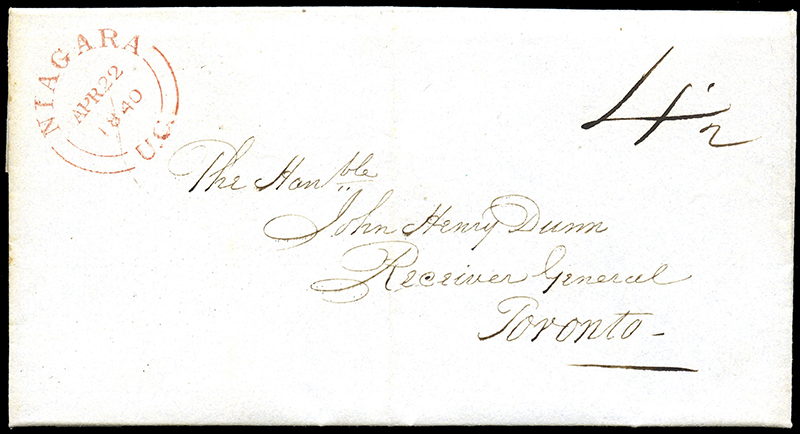 NIAGARA
APR 22
1840
U.C.
4½
The Honble
John Henry Dunn
Receiver General
Toronto -